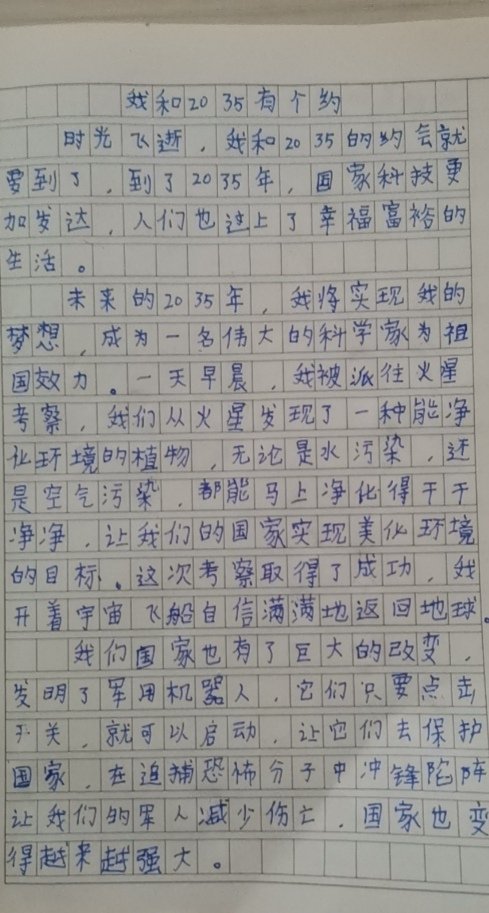 我和2035有个约
时光飞逝，我和2035的约会就
要到了，到了2035年，国家科技更
加发达，人们也过上了幸福富裕的
生活。
未来的2035年，我将实现我的
梦想，成为一名伟大的科学家为祖
国效力。一天早晨，我被派往火星
考察，我们从火星发现了一种能净
化环境的植物，无论是水污染，还
是空气污染，都能马上净化得干干
净净，让我们的国家实现美化环境
的目标。这次考察取得了成功，我
开着宇宙飞船自信满满地返回地球。
我们国家也有了巨大的改变，
发明了军用机器人，它们只要点击
开关，就可以启动，让它们去保护
国家，在追捕恐怖分子中冲锋陷阵
让我们的军人减少伤亡，国家也变
得越来越强大。